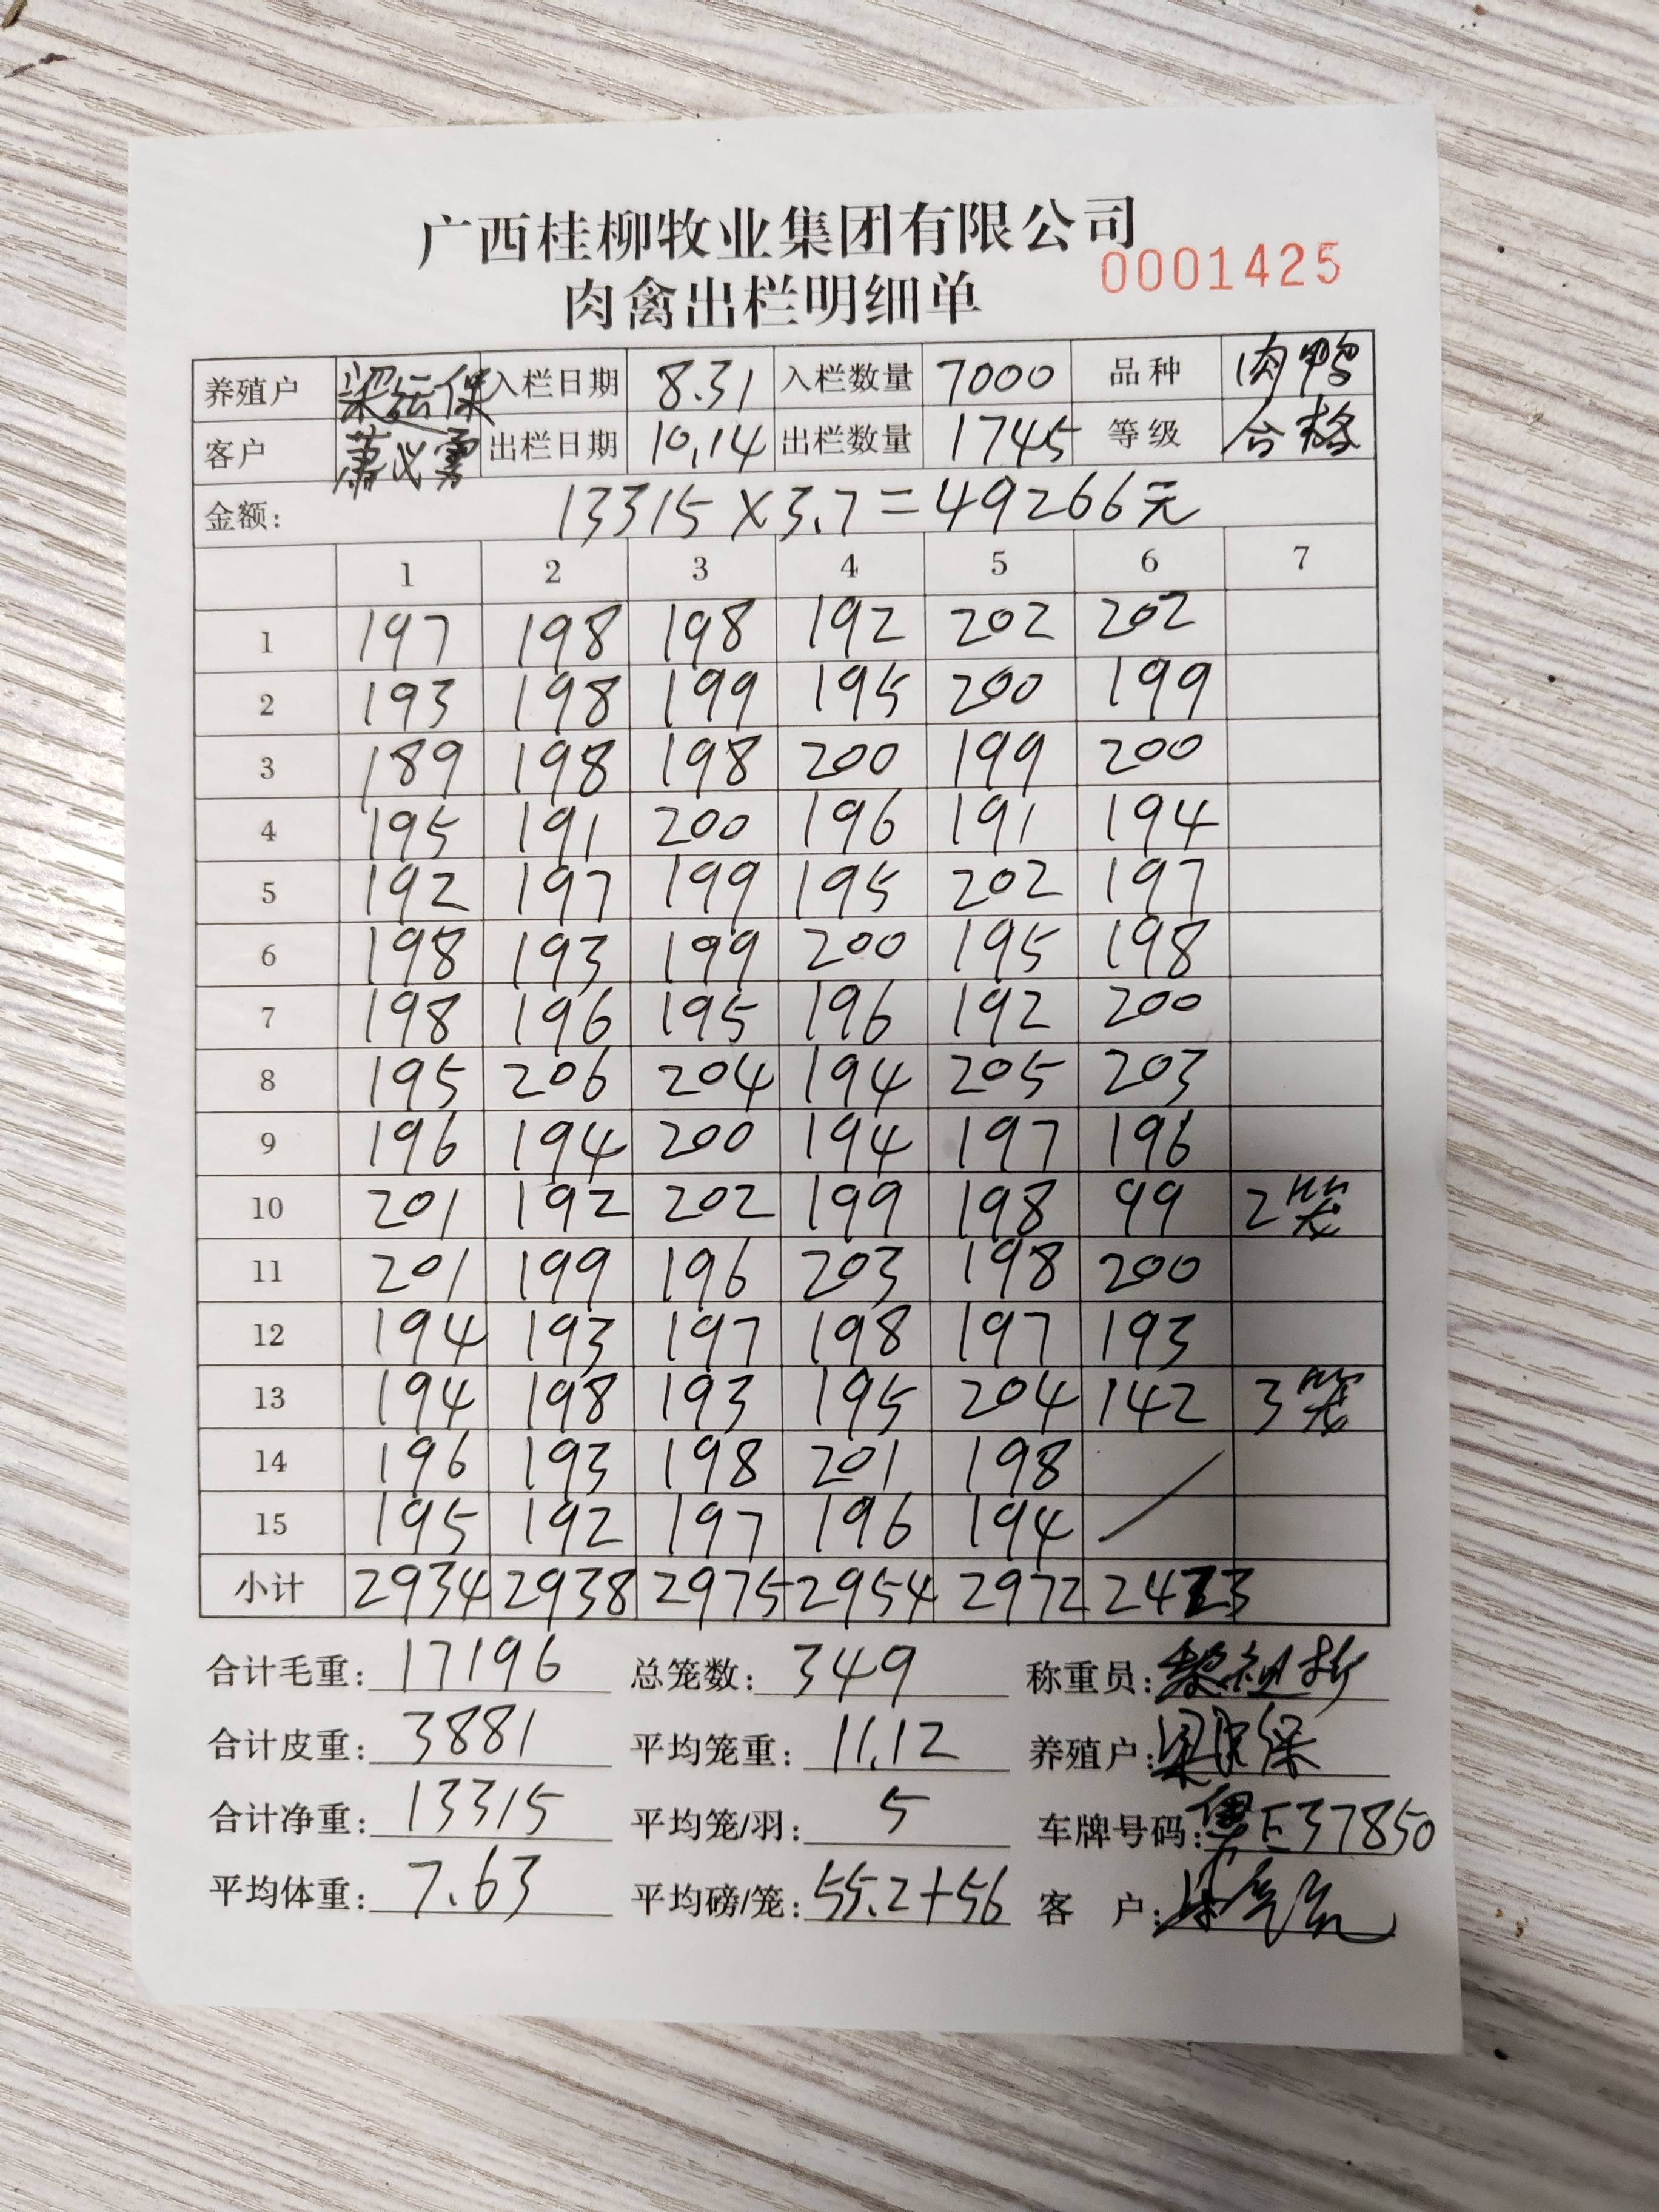 广西桂柳牧业集团有限公司
0001425
肉禽出栏明细单
养殖户 梁运保 入栏日期 8.31 入栏数量 7000 品种 肉鸭
客户 萧义勇 出栏日期 10.14 出栏数量 1745 等级 合格
金额: 13315×3.7=49266元
1 2 3 4 5 6 7
1 197 198 198 192 202 202
2 193 198 199 195 200 199
3 189 198 198 200 199 200
4 195 191 200 196 191 194
5 192 197 199 195 202 197
6 198 193 199 200 195 198
7 198 196 195 196 192 200
8 195 206 204 194 205 203
9 196 194 200 194 197 196
10 201 192 202 199 198 99 2笼
11 201 199 196 203 198 200
12 194 193 197 198 197 193
13 194 198 193 195 204 142 3笼
14 196 193 198 201 198
15 195 192 197 196 194
小计 2934 2938 2975 2954 2972 2423
合计毛重: 17196 总笼数: 349 称重员:
合计皮重: 3881 平均笼重: 11.12 养殖户:
合计净重: 13315 平均笼/羽: 5 车牌号码: 粤E37850
平均体重: 7.63 平均磅/笼: 55.2+56 客 户: